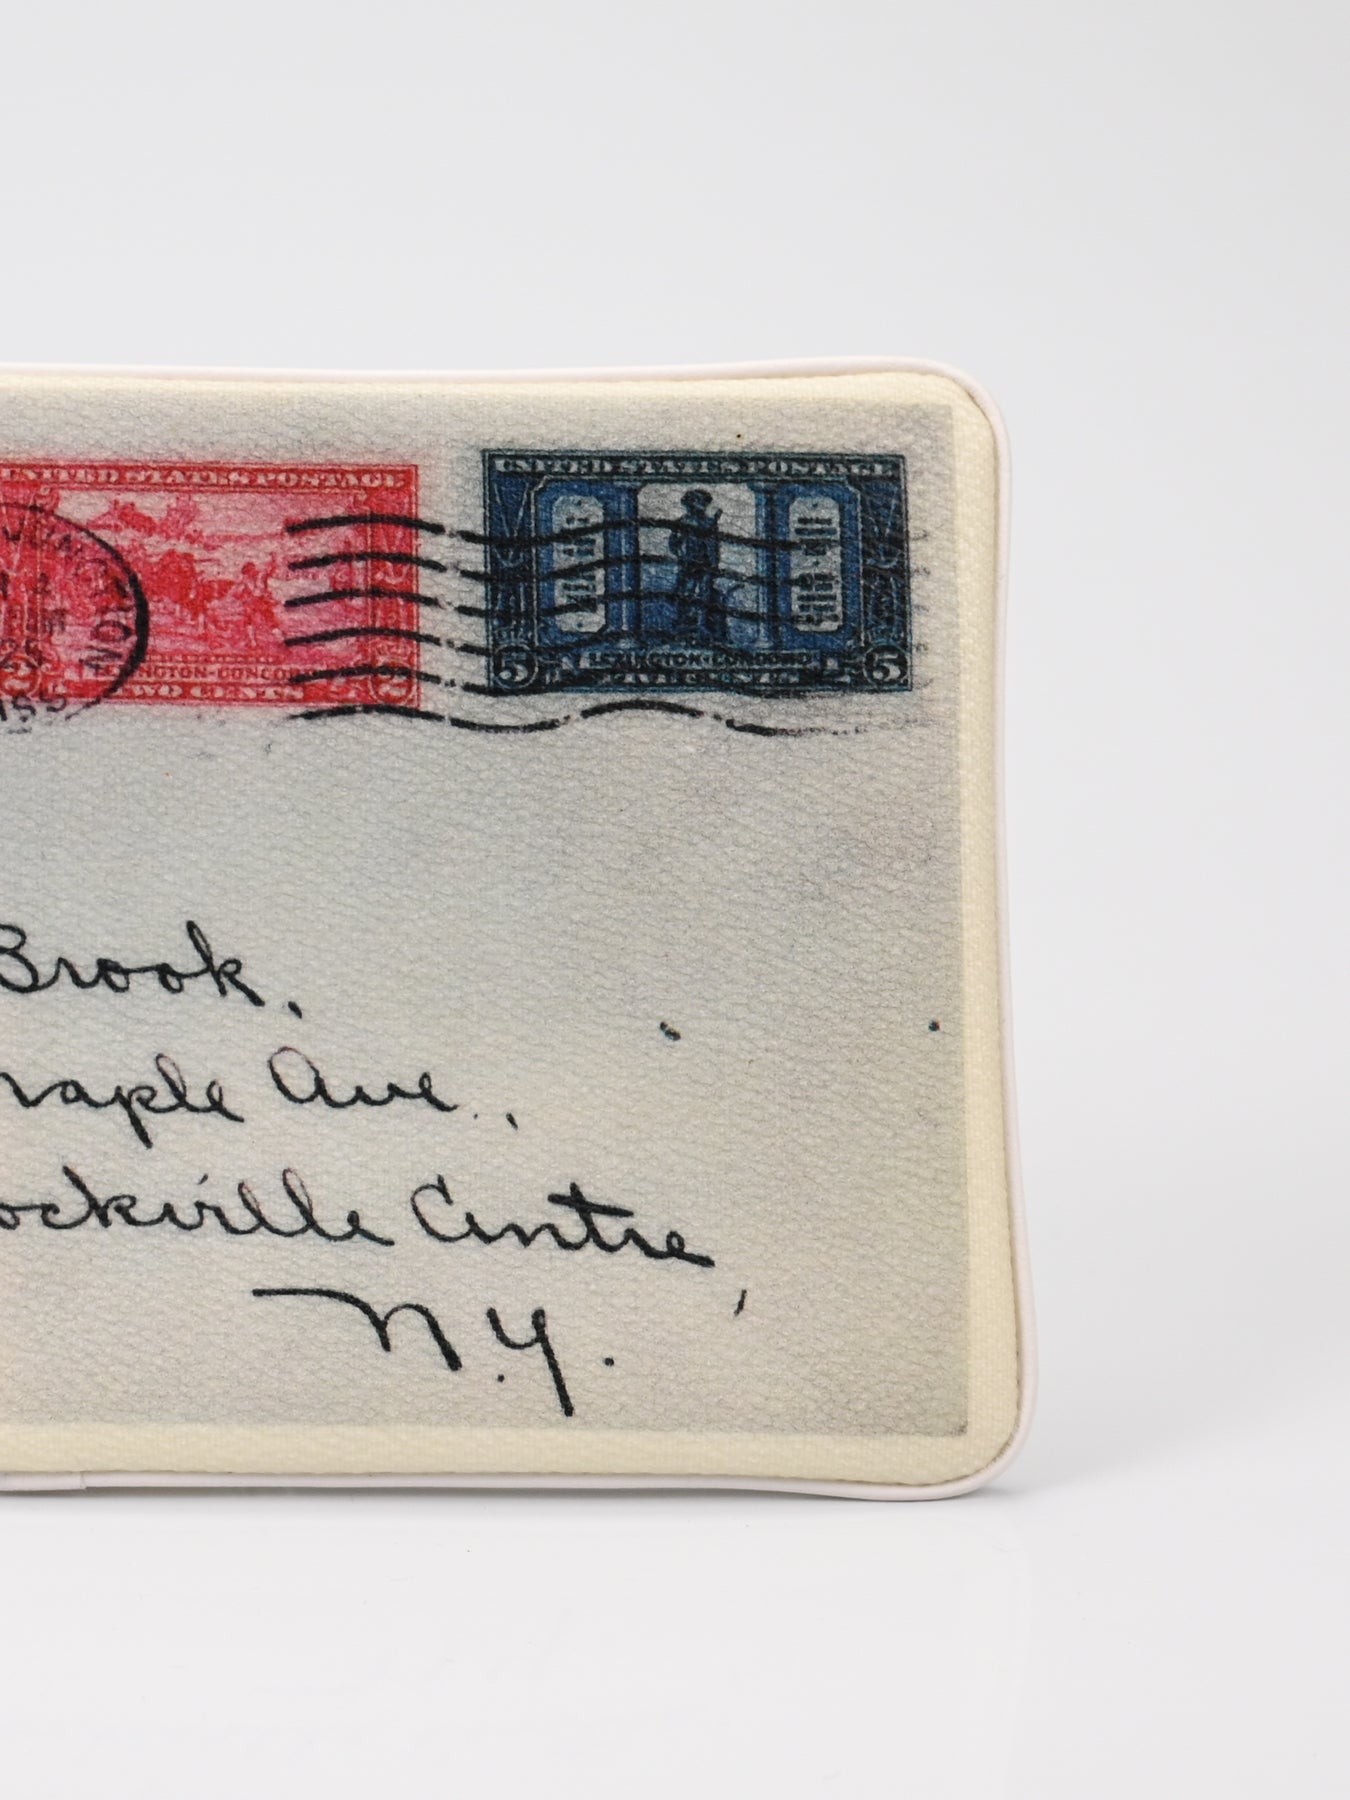 UNITED STATES POSTAGE
LEXINGTON-CONCO
TWO CENTS
2
UNITED STATES POSTAGE
LEXINGTON-CONCORD
5 FIVE CENTS 5
Brook,
Maple Ave.,
ockville Centre,
N.Y.